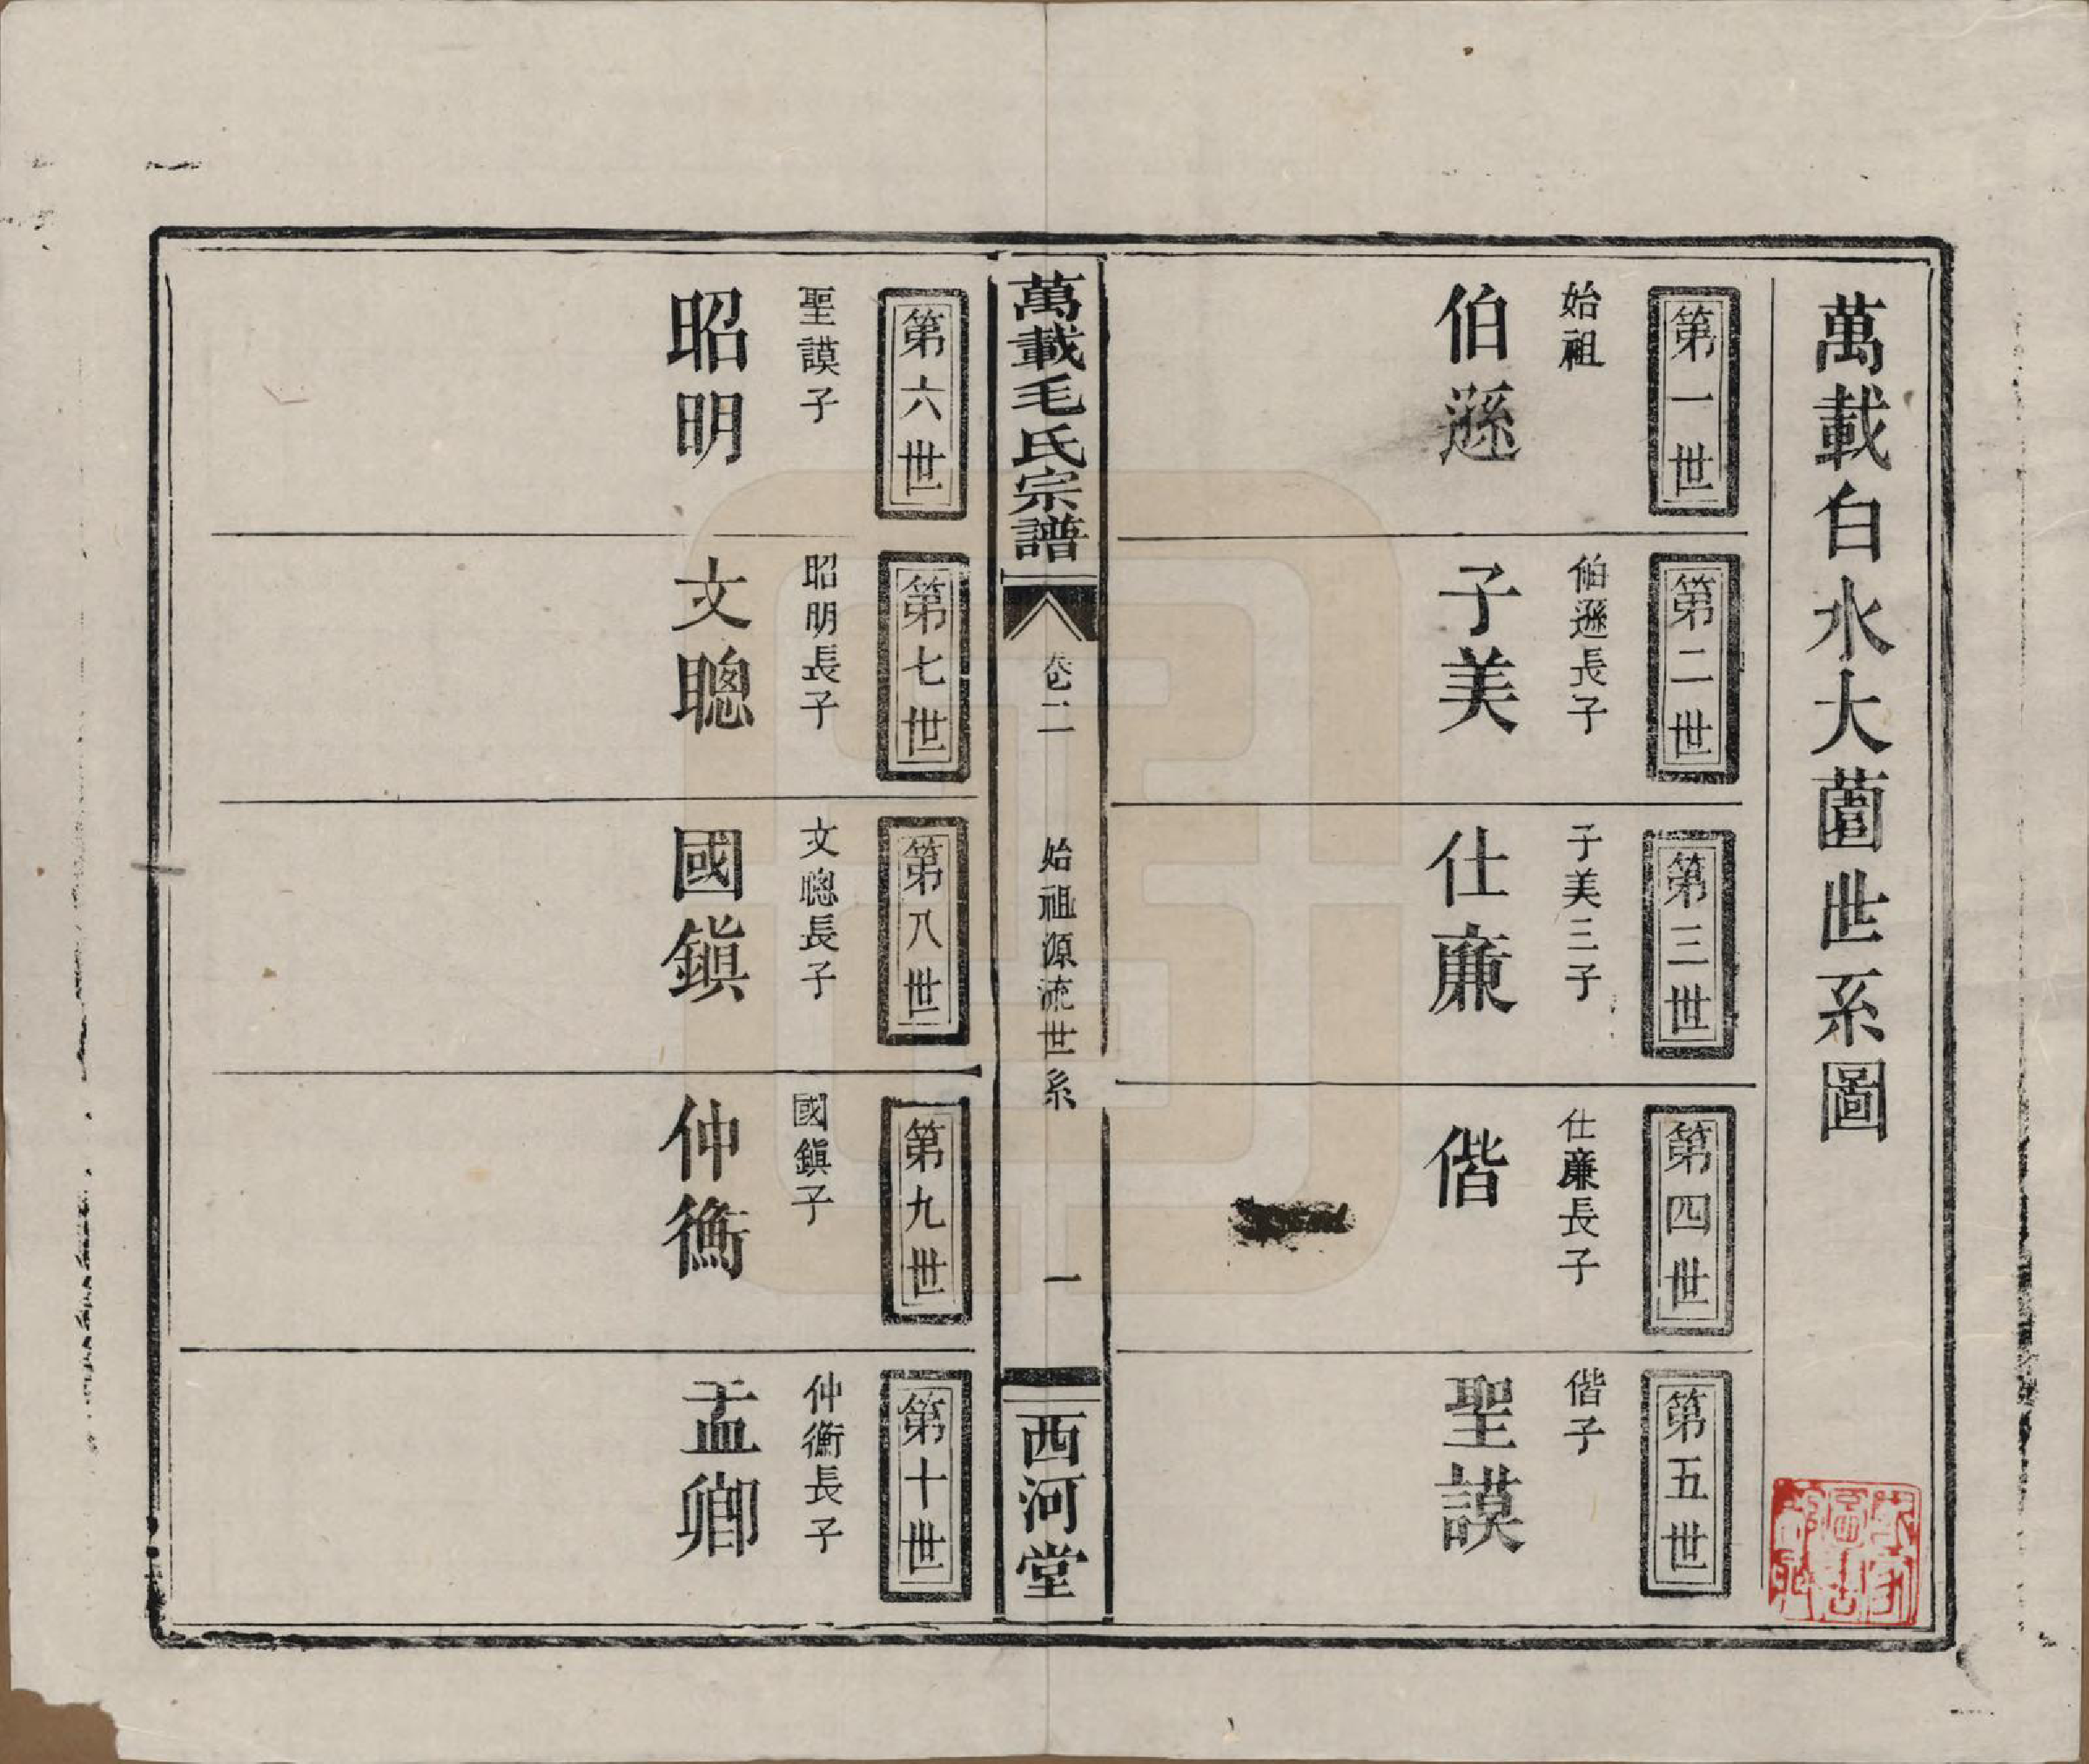 萬載白水大薗世系圖
第一世
始祖
伯遜
第二世
伯遜長子
子美
第三世
子美三子
仕亷
第四世
仕亷長子
偕
第五世
偕子
聖謨
萬載毛氏宗譜
卷二
始祖源流世系
一
西河堂
第六世
聖謨子
昭明
第七世
昭明長子
文聰
第八世
文聰長子
國鎭
第九世
國鎭子
仲衡
第十世
仲衡長子
孟卿